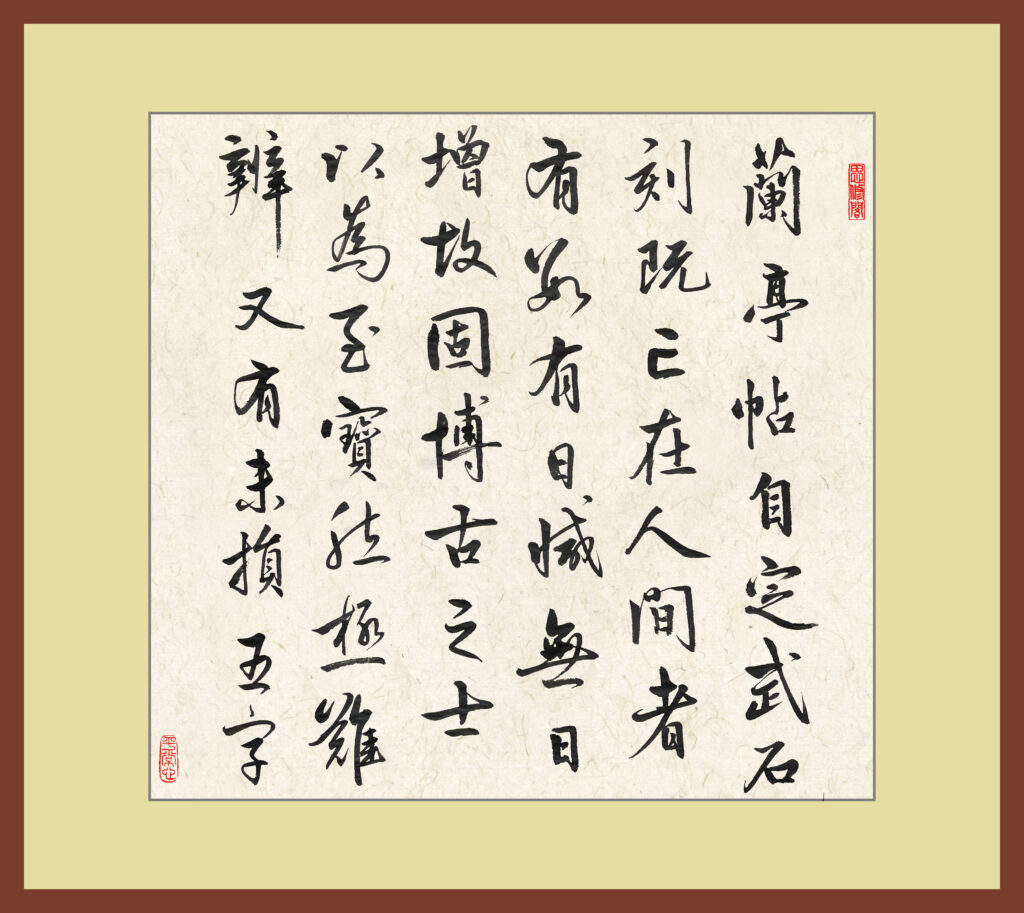 思修閣
蘭亭帖自定武石
刻既亡在人間者
有數有日減無日
增故固博古之士
以為至寶然極難
辨又有未損五字
平常心